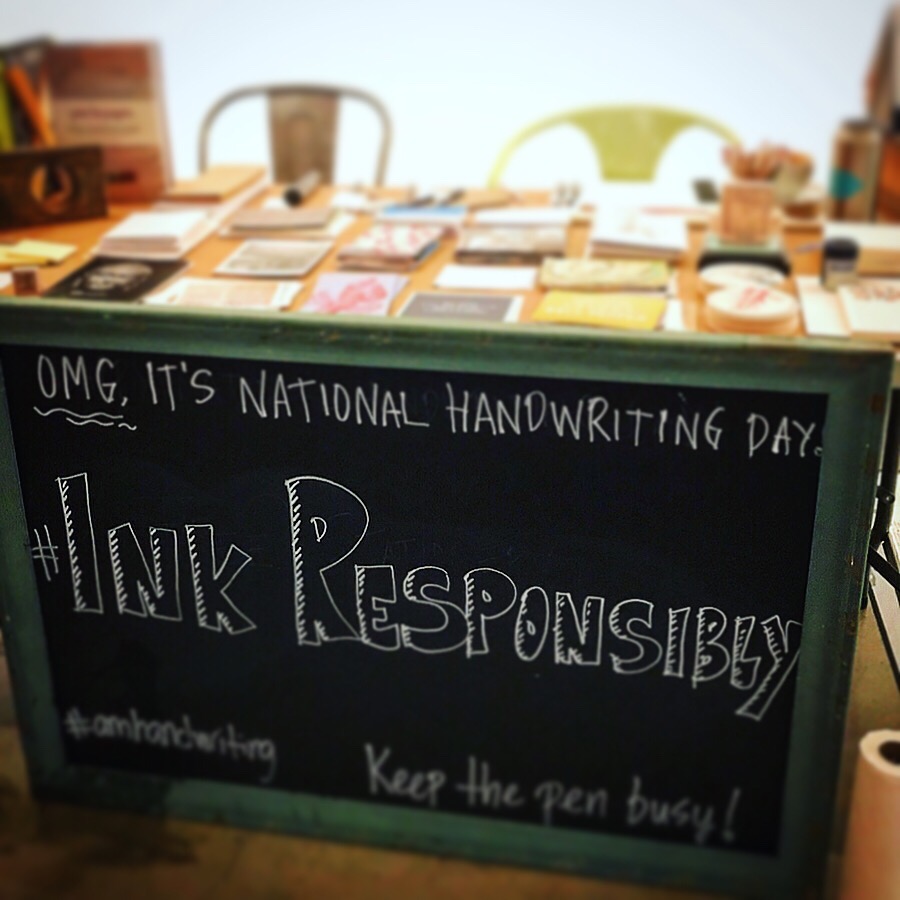 OMG, IT'S NATIONAL HANDWRITING DAY.
#INK RESPONSIBLY
#amhandwriting
Keep the pen busy!